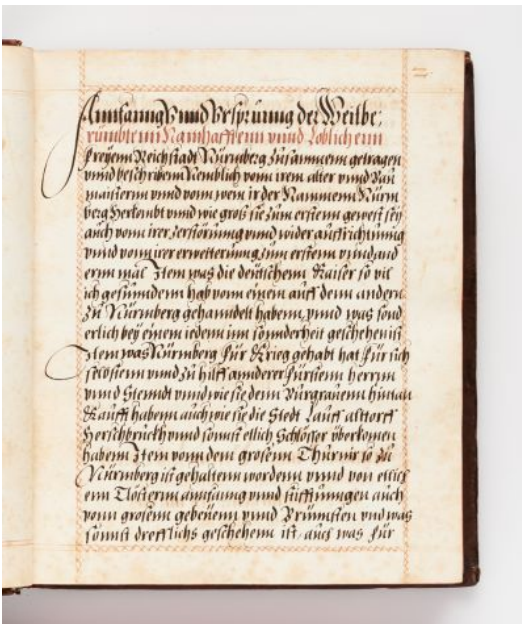 Annfanng Vnnd Vrsprunng der Weitbe:
rümbtenn Namhafftenn vnnd Loblichenn
Freyenn Reichstadt Nürnberg zusammenn getragen
vnnd beschribenn Nemblich vonn irem alter vnnd Bau
maisterin vnnd vonn wem ir der Nammenn Nürm
berg Herkombt vnnd wie groß sie zum erstenn gewest sey
auch vonn irer zerstörunng vnnd wider auffrichtunng
vnnd vonn irer erweitterunng zum erstenn vnnd annd
ernn mal Item was die deütschenn Kaiser so vil
ich gefunndenn hab vonn einem auff denn andern
zu Nürnberg gehanndelt habenn vnnd was sond
erlich bey einem iedenn inn sonnderheit geschehenn ist
Item was Nürmberg für Krieg gehabt hat für sich
selbstenn vnnd zu hilff annderer Fürstenn herrnn
vnnd Stenndt vnnd wie sie denn Burgravenn hinnan
Kaufft habenn auch wie sie die Stedt Lauff alttorff
Herschbruckh vnnd sonnst etlich Schlösser überkomen
habenn Item vonn dem grosenn Thurnir so zu
Nürnberg ist gehaltenn wordenn vnnd von etlich
enn Clösternn annfanng vnnd stifftunngen auch
vonn grosenn gebeüenn vnnd Brünnsten vnd was
sonnst drefflichs geschehenn ist, auch was für